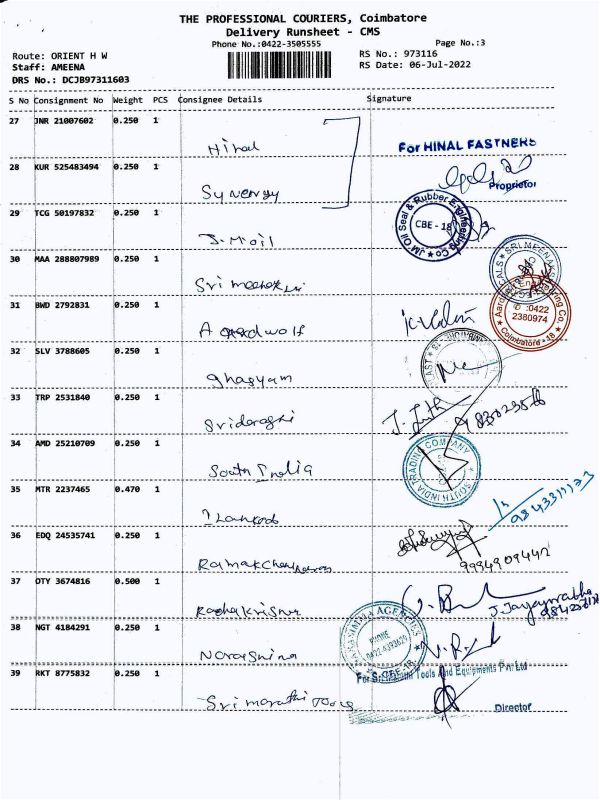 THE PROFESSIONAL COURIERS, Coimbatore
Delivery Runsheet - CMS
Phone No.:0422-3505555
Page No.:3
Route: ORIENT H W
RS No.: 973116
Staff: AMEENA
RS Date: 06-Jul-2022
DRS No.: DCJB97311603
S No Consignment No Weight PCS Consignee Details Signature
27 JNR 21007602 0.250 1
Hinal
For HINAL FASTNERS
28 KUR 525483494 0.250 1
Synergy
Proprietor
29 TCG 50197832 0.250 1
J.M oil
JM Oil Seal & Rubber Engineering Co
CBE - 18
30 MAA 288807989 0.250 1
Sri
SRI MEENAKS
31 BWD 2792831 0.250 1
Aardwolf
0422
2380974
Coimbatore - 18
32 SLV 3788605 0.250 1
Ghasyam
33 TRP 2531840 0.250 1
34 AMD 25210709 0.250 1
South India
SOUTH INDIA TRADING COMPANY
35 MTR 2237465 0.470 1
9843311173
36 EDQ 24535741 0.250 1
9994909442
37 OTY 3674816 0.500 1
Radhakrishna
38 NGT 4184291 0.250 1
AGENCIES
PHONE
CBE-18
39 RKT 8775832 0.250 1
Tools And Equipments Pvt Ltd
Sri Tools
Director